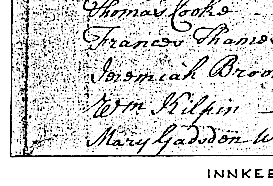 Thomas Cooke
Frances Thame
Jeremiah Broo
Wm Kilpin
Mary Gadsden W
INNKEE